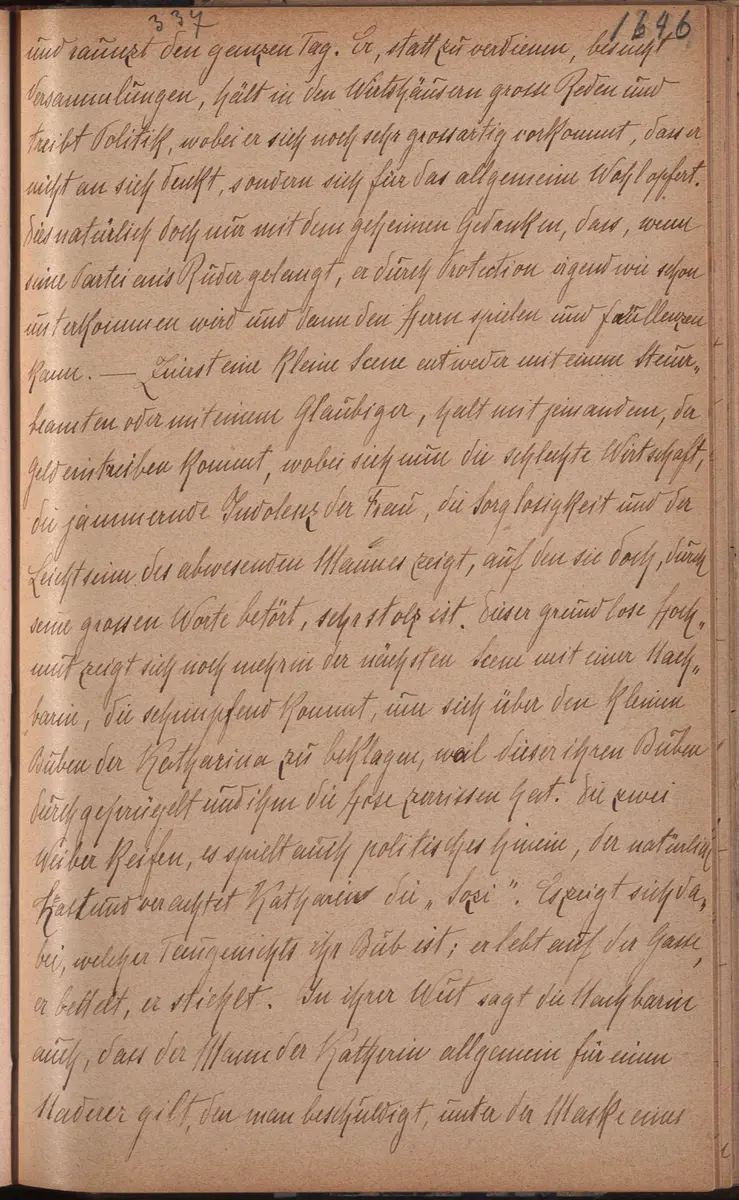 337 1646
und raunzt den ganzen Tag. Er, statt zu verdienen, besucht
Versammlungen, hält in den Wirtshäusern grosse Reden und
treibt Politik, wobei er sich noch sehr grossartig vorkommt, dass er
nicht an sich denkt, sondern sich für das allgemeine Wohl opfert.
Dies natürlich doch nur mit dem geheimen Gedanken, dass, wenn
seine Partei ans Ruder gelangt, er durch Protection irgend wie schon
unterkommen wird und dann den Herrn spielen und faullenzen
kann. — Zuerst eine kleine Scene entweder mit einem Steuer„
beamten oder mit einem Gläubiger, halt mit jemandem, der
Geld eintreiben kommt, wobei sich nun die schlechte Wirtschaft,
die jammernde Indolenz der Frau, die Sorglosigkeit und der
Leichtsinn des abwesenden Mannes zeigt, auf den sie doch, durch
seine grossen Worte betört, sehr stolz ist. Dieser grundlose Hoch„
mut zeigt sich noch mehr in der nächsten Scene mit einer Nach„
barin, die schimpfend kommt, um sich über den kleinen
Buben der Katharina zu beklagen, weil dieser ihren Buben
durchgeprügelt und ihm die Hose zerrissen hat. Die zwei
Weiber keifen, es spielt auch politisches hinein, der natürlich
hasst und verachtet Katharin die „Sozi". Es zeigt sich da„
bei, welcher Taugenichts ihr Bub ist; er lebt auf der Gasse,
er bettelt, er stiehlt. In ihrer Wut sagt die Nachbarin
auch, dass der Mann der Katherin allgemein für einen
Naderer gilt, den man beschuldigt, unter der Maske eines